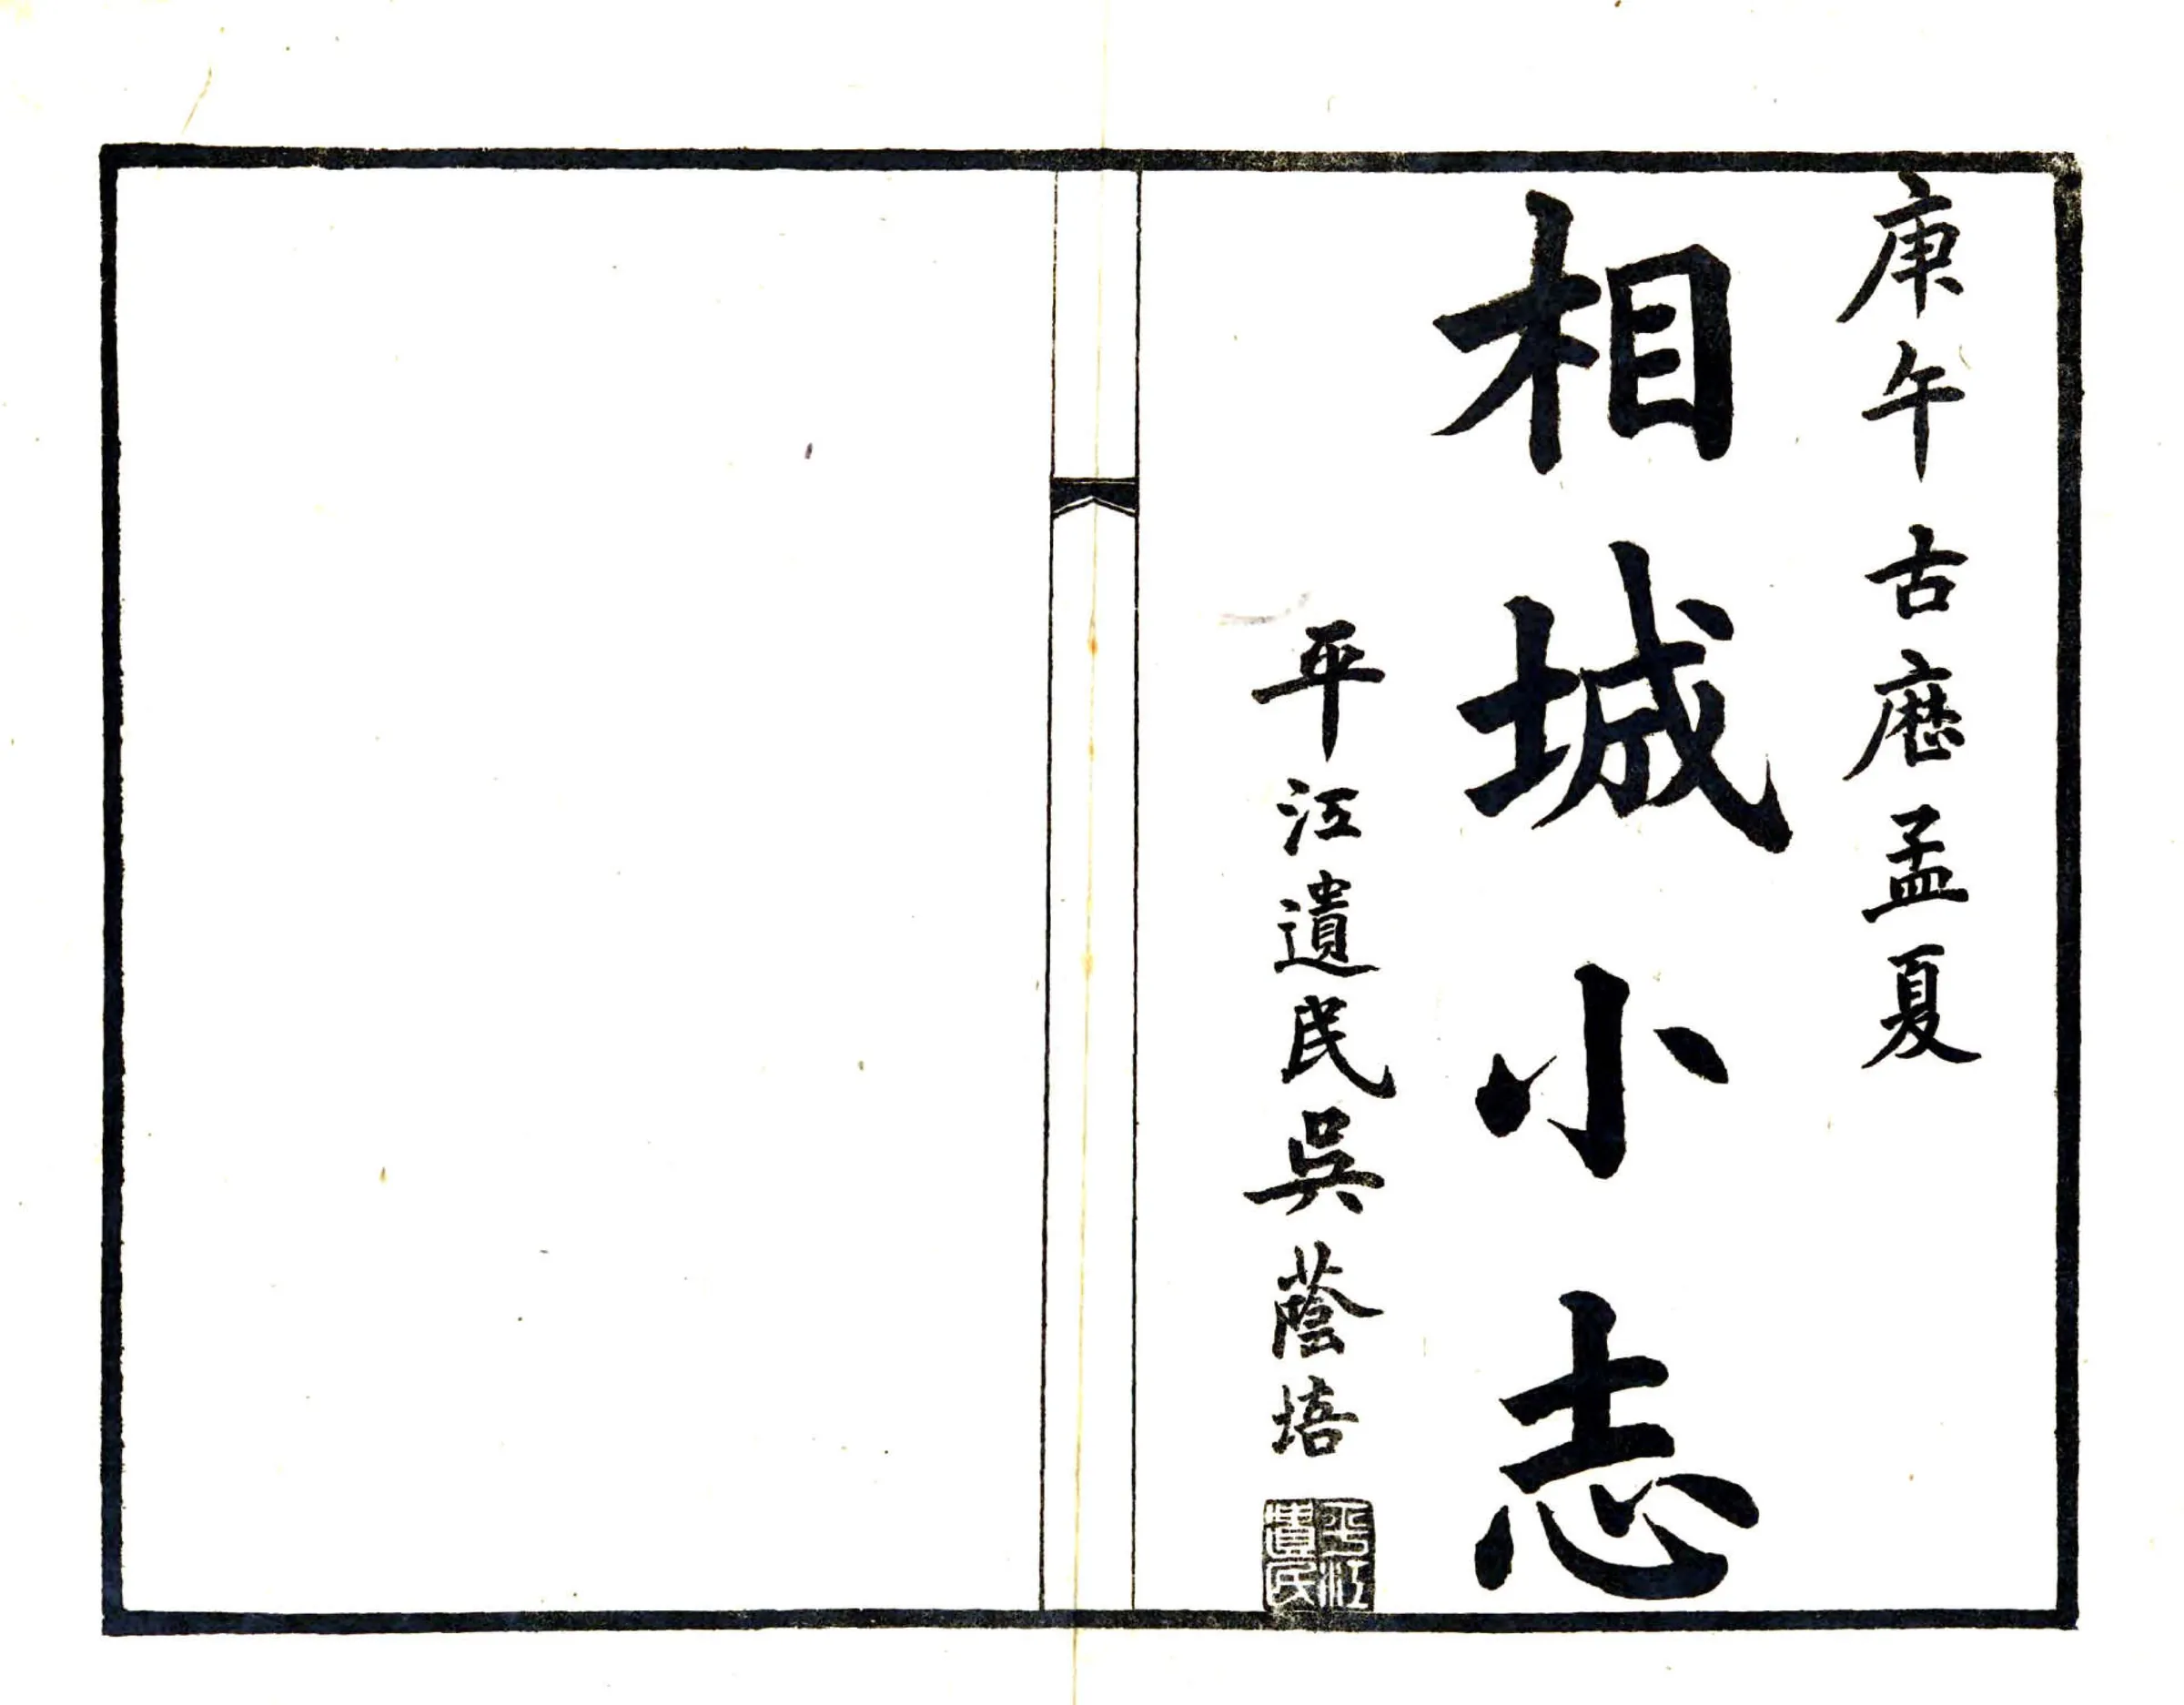 庚午古厯孟夏
相城小志
平江遺民吳蔭培
平江
遺民